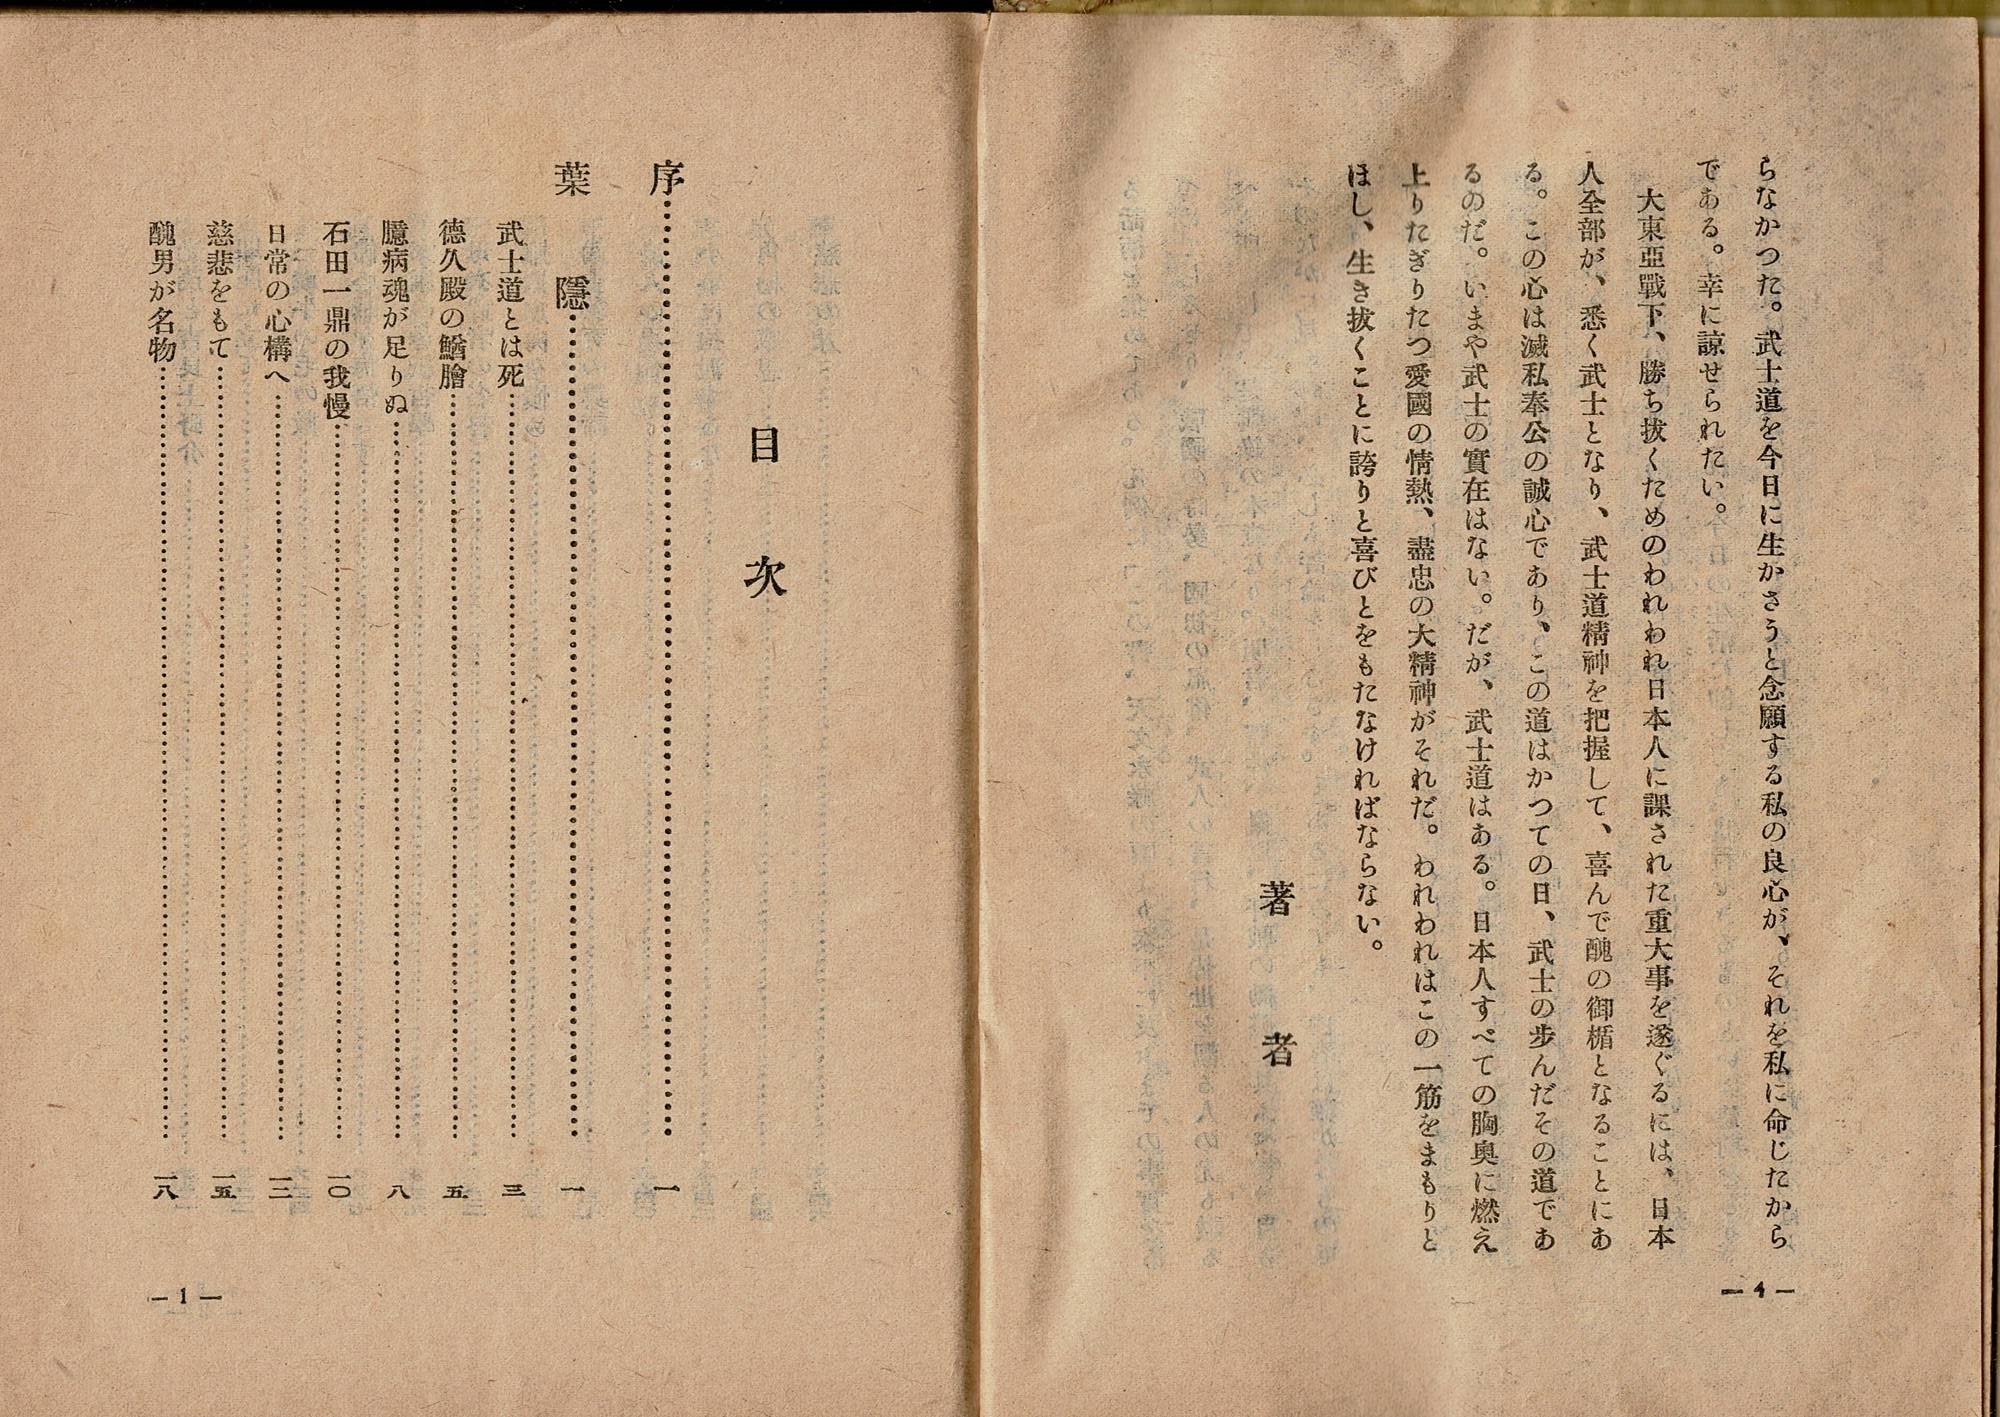 らなかつた。武士道を今日に生かさうと念願する私の良心が、それを私に命じたから
である。幸に諒せられたい。
大東亞戰下、勝ち拔くためのわれわれ日本人に課された重大事を遂ぐるには、日本
人全部が、悉く武士となり、武士道精神を把握して、喜んで醜の御楯となることにあ
る。この心は滅私奉公の誠心であり、この道はかつての日、武士の步んだその道であ
るのだ。いまや武士の實在はない。だが、武士道はある。日本人すべての胸奥に燃え
上りたぎりたつ愛國の情熱、盡忠の大精神がそれだ。われわれはこの一筋をまもりと
ほし、生き拔くことに誇りと喜びとをもたなければならない。
著者
— 4 —
目次
序…………一
葉隱…………一
武士道とは死…………三
德久殿の鰌膾…………五
臆病魂が足りぬ…………八
石田一鼎の我慢…………一〇
日常の心構へ…………一二
慈悲をもて…………一五
醜男が名物…………一八
— 1 —